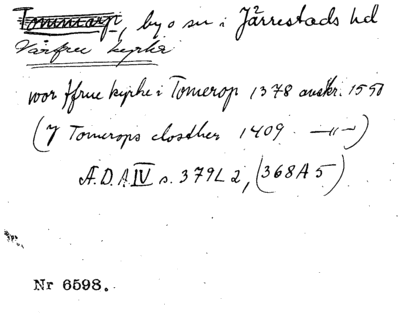 Tommarp, by o sn i Järrestads hd
Vårfrue kyrka
wor ffrue kyrke i Tomerop 1378 avskr. 1550
(J Tomerops closther 1409 —"—)
Æ.D.A. IV s. 379 L 2, (368 A 5)
Nr 6598.